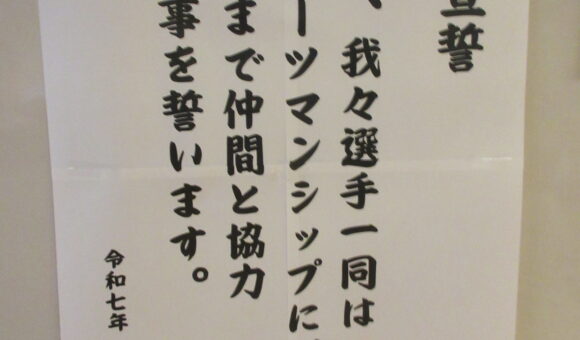 宣誓
、我々選手一同は
ーツマンシップに
まで仲間と協力
事を誓います。
令和七年